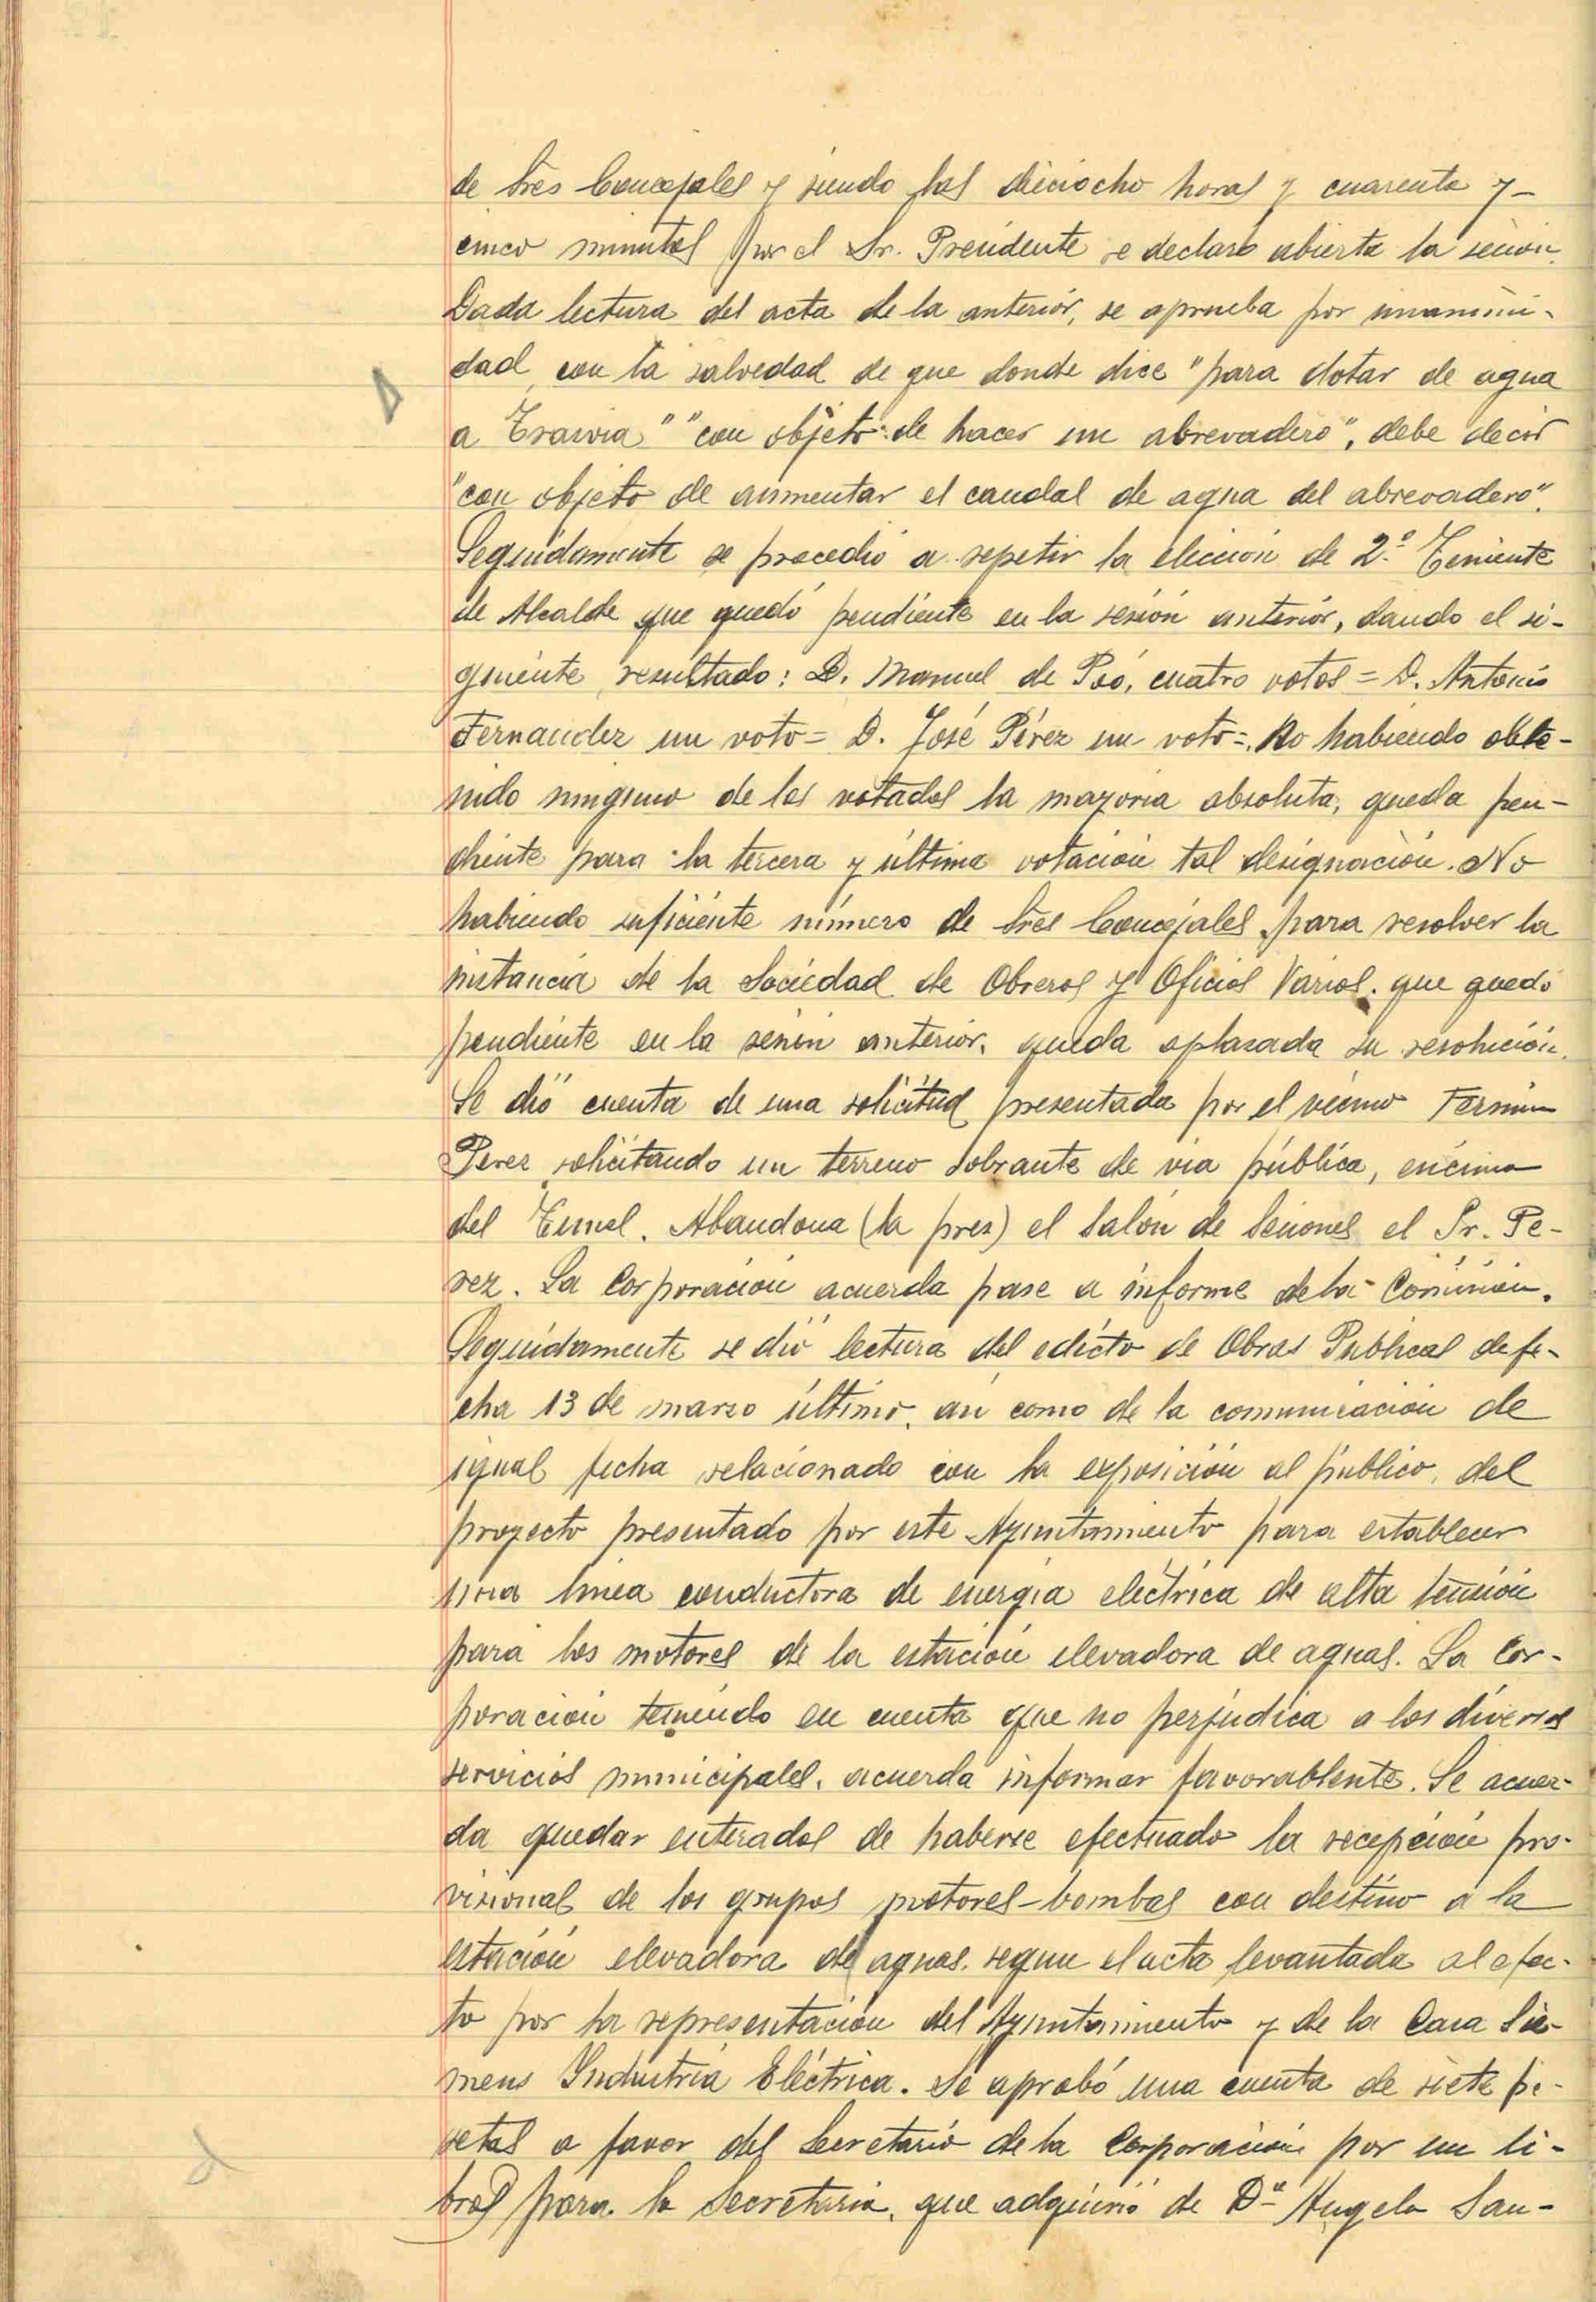 de Sres Concejales y siendo las dieciocho horas y cuarenta y-
cinco minutos por el Sr. Presidente se declaró abierta la sesión.
Dada lectura del acta de la anterior, se aprueba por unanimi-
dad, con la salvedad de que donde dice "para dotar de agua
a " "con objeto de hacer un abrevadero", debe decir
"con objeto de aumentar el caudal de agua del abrevadero".
Seguidamente se procedió a repetir la elección de 2º Teniente
de Alcalde que quedó pendiente en la sesión anterior, dando el si-
guiente resultado: D. Manuel de Poó, cuatro votos = D. Antonio
Fernandez un voto = D. José Pérez un voto =. No habiendo obte-
nido ninguno de los votados la mayoria absoluta, queda pen-
diente para la tercera y última votación tal designación. No
habiendo suficiente número de Sres Concejales para resolver la
instancia de la Sociedad de Obreros y Oficios Varios. que quedó
pendiente en la sesión anterior, queda aplazada su resolución.
Se dió cuenta de una solicitud presentada por el vecino Fermin
Perez solicitando un terreno sobrante de via pública, encima
del Tunel. Abandona (la pres) el Salón de Sesiones el Sr. Pe-
rez. La Corporación acuerda pase a informe de la Comisión.
Seguidamente se dió lectura del edicto de Obras Publicas de fe-
cha 13 de marzo último, asi como de la comunicación de
igual fecha relacionado con la exposición al público, del
proyecto presentado por este Ayuntamiento para establecer
una linea conductora de energia eléctrica de alta tensión
para los motores de la estación elevadora de aguas. La Cor-
poración teniendo en cuenta que no perjudica a los diversos
servicios municipales, acuerda informar favorablente. Se acuer-
da quedar enterados de haberse efectuado la recepción pro-
visional de los grupos motores-bombas con destino a la
estación elevadora de aguas, segun el acta levantada al efec-
to por la representación del Ayuntamiento y de la Casa Sie-
mens Industria Eléctrica. Se aprobó una cuenta de siete pe-
setas a favor del Secretario de la Corporación por un li-
bro para la Secretaria, que adquirió de Dª Angela San-